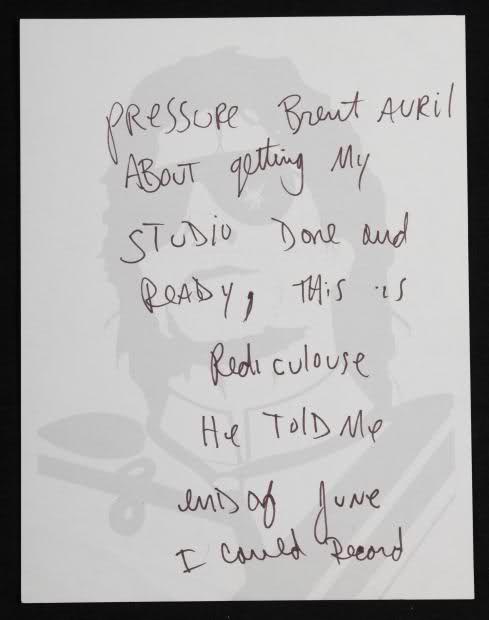 PRESSURE Brent AVRIL
ABOUT getting My
STUDIO Done and
READY, THis is
Rediculouse
He TolD Me
enD of June
I could Record